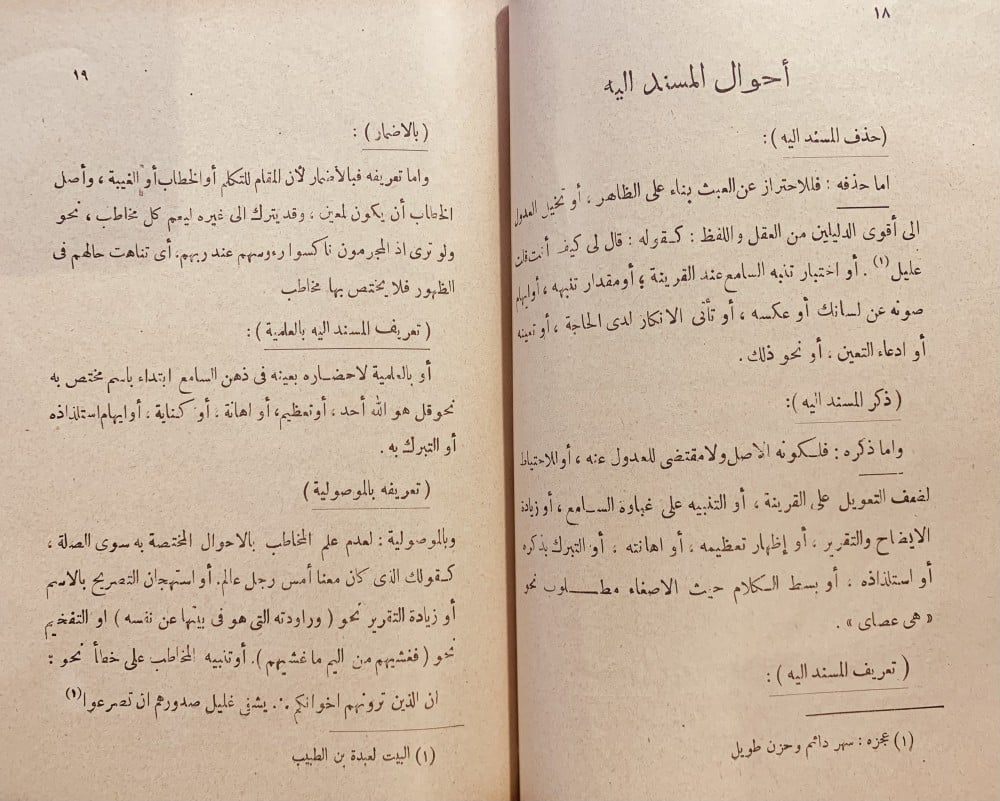 ١٨
أحوال المسند اليه
(حذف المسند اليه):
اما حذفه : فللاحتراز عن العبث بناء على الظاهر ، أو تخييل العدول
الى أقوى الدليلين من العقل واللفظ : كقوله : قال لى كيف أنت قلت
عليل(١) . أو اختبار تنبه السامع عند القرينة ، أو مقدار تنبهه ، أو ايهام
صونه عن لسانك أو عكسه ، أو تأتى الانكار لدى الحاجة ، أو تعينه
أو ادعاء التعين ، أو نحو ذلك .
( ذكر المسند اليه ):
واما ذكره : فلكونه الاصل ولا مقتضى للعدول عنه ، أو للاحتياط
لضعف التعويل على القرينة ، أو التنبيه على غباوة السامع ، أو زيادة
الايضاح والتقرير ، أو إظهار تعظيمه ، أو اهانته ، أو التبرك بذكره
أو استلذاذه ، أو بسط الكلام حيث الاصغاء مطلوب نحو
« هى عصاى » .
( تعريف المسند اليه ):
(١) عجزه : سهر دائم وحزن طويل
١٩
( بالاضمار ) :
واما تعريفه فبالأضمار لأن المقام للتكلم أو الخطاب أو الغيبة ، وأصل
الخطاب أن يكون لمعين ، وقد يترك الى غيره ليعم كل مخاطب ، نحو
ولو ترى اذ المجرمون ناكسوا رءوسهم عند ربهم، أى تناهت حالهم فى
الظهور فلا يختص بها مخاطب
( تعريف المسند اليه بالعلمية ):
أو بالعلمية لاحضاره بعينه فى ذهن السامع ابتداء باسم مختص به
نحو قل هو الله أحد ، أو تعظيم، أو اهانة ، أو كناية ، أو ايهام استلذاذه
أو التبرك به .
( تعريفه بالموصولية )
وبالموصولية : لعدم علم المخاطب بالاحوال المختصة به سوى الصلة ،
كقولك الذى كان معنا أمس رجل عالم. أو استهجان التصريح بالاسم
أو زيادة التقرير نحو ( وراودته التى هو فى بيتها عن نفسه ) او التفخيم
نحو ( فغشيهم من اليم ما غشيهم ). أو تنبيه المخاطب على خطأ نحو :
ان الذين ترونهم اخوانكم ∴ يشفى غليل صدورهم ان تصرعوا(١)
(١) البيت لعبدة بن الطبيب